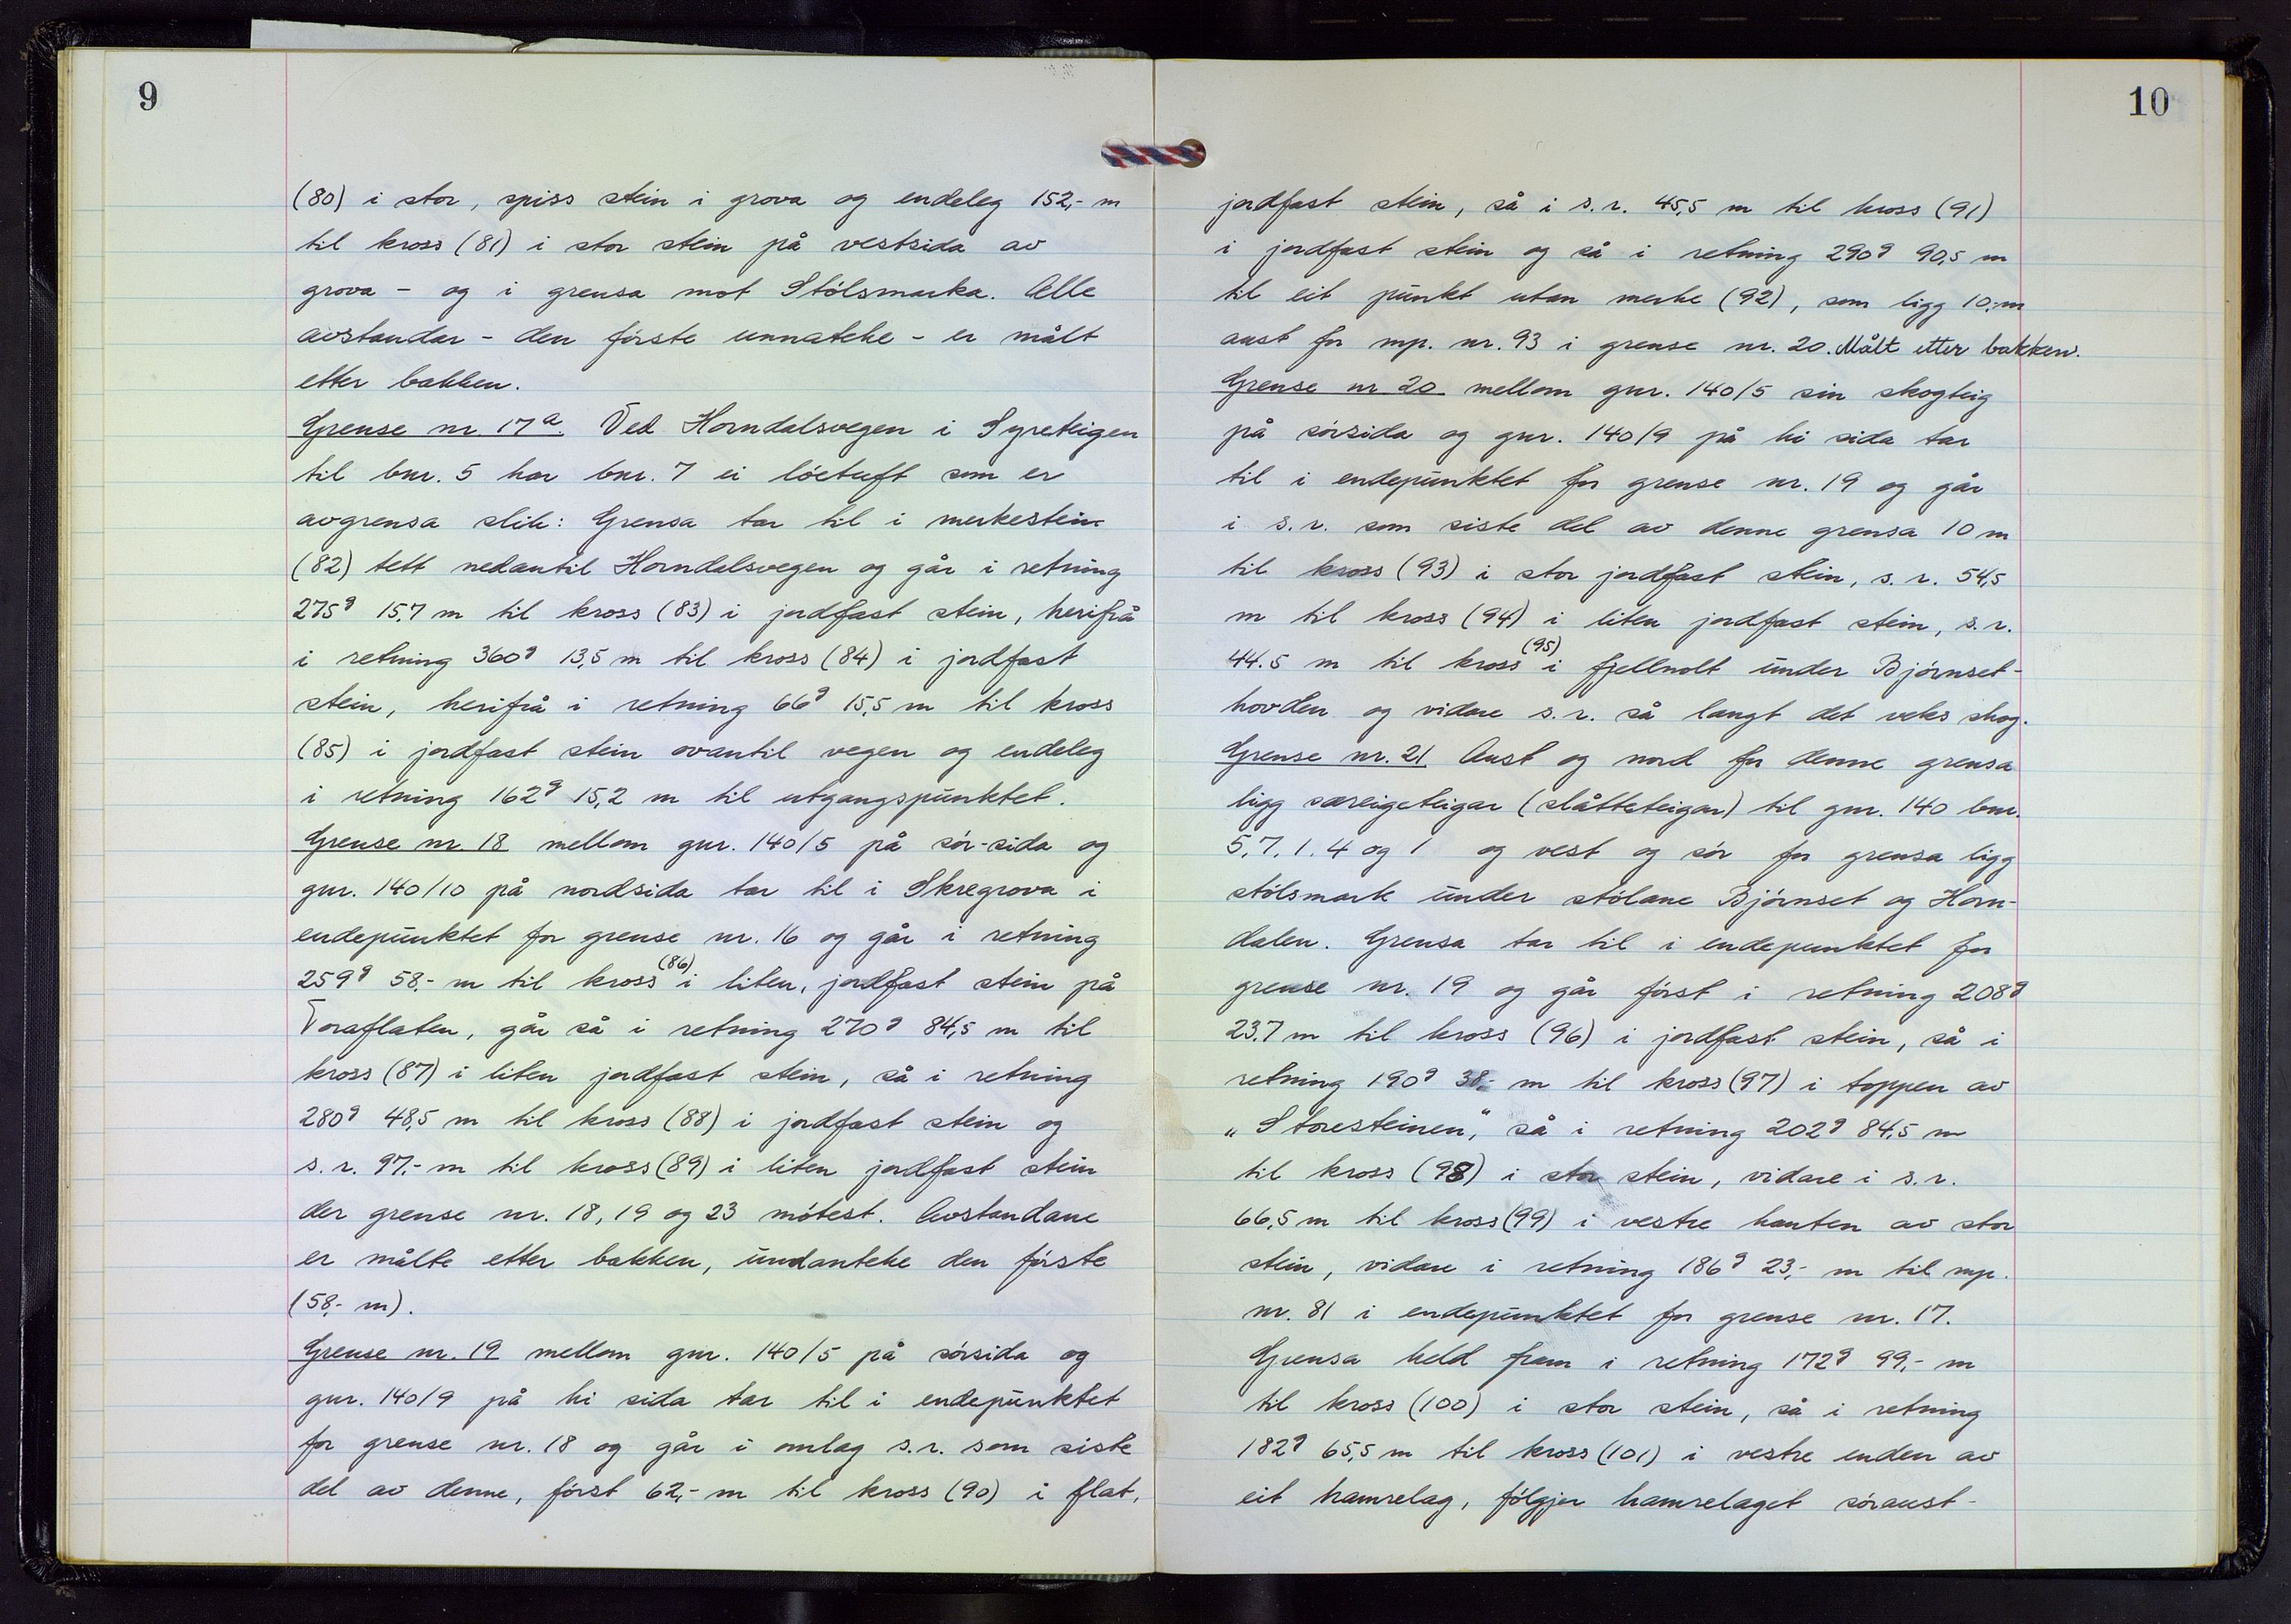 9
(80) i stor, spiss stein i grova og endeleg 152,- m
til kross (81) i stor stein på vestsida av
grova - og i grensa mot Stølsmarka. Alle
avstandar - den første unnateke - er målt
etter bakken.
Grense nr. 17a. Ved Horndalsvegen i Syreteigen
til bnr. 5 har bnr. 7 ei løetuft som er
avgrensa slik: Grensa tar til i merkestein
(82) tett nedantil Horndalsvegen og går i retning
275g 15,7 m til kross (83) i jordfast stein, herifrå
i retning 360g 13,5 m til kross (84) i jordfast
stein, herifrå i retning 66g 15,5 m til kross
(85) i jordfast stein ovantil vegen og endeleg
i retning 162g 15,2 m til utgangspunktet.
Grense nr. 18 mellom gnr. 140/5 på sør-sida og
gnr. 140/10 på nordsida tar til i Skregrova i
endepunktet for grense nr. 16 og går i retning
259g 58,- m til kross (86) i liten, jordfast stein på
Toraflaten, går så i retning 270g 84,5 m til
kross (87) i liten jordfast stein, så i retning
280g 48,5 m til kross (88) i jordfast stein og
s. r. 97,- m til kross (89) i liten jordfast stein
der grense nr. 18, 19 og 23 møtest. Avstandane
er målte etter bakken, undanteke den første
(58,- m).
Grense nr. 19 mellom gnr. 140/5 på sørsida og
gnr. 140/9 på hi sida tar til i endepunktet
for grense nr. 18 og går i omlag s. r. som siste
del av denne, først 62,- m til kross (90) i flat,
10
jordfast stein, så i s. r. 45,5 m til kross (91)
i jordfast stein og så i retning 290g 90,5 m
til eit punkt utan merke (92), som ligg 10,- m
aust for mp. nr. 93 i grense nr. 20. Målt etter bakken.
Grense nr 20 mellom gnr. 140/5 sin skogteig
på sørsida og gnr. 140/9 på hi sida tar
til i endepunktet for grense nr. 19 og går
i s. r. som siste del av denne grensa 10 m
til kross (93) i stor jordfast stein, s. r. 54,5
m til kross (94) i liten jordfast stein, s. r.
44.5 m til kross (95) i fjellnolt under Bjørnset-
hovden og vidare s. r. så langt det veks skog.
Grense nr. 21 Aust og nord for denne grensa
ligg særeigeteigar (slåtteteigar) til gnr. 140 bnr.
5, 7, 1. 4 og 1 og vest og sør for grensa ligg
stølsmark under stølane Bjørnset og Horn-
dalen. Grensa tar til i endepunktet for
grense nr. 19 og går først i retning 208g
23.7 m til kross (96) i jordfast stein, så i
retning 190g 38,- m til kross (97) i toppen av
„Storesteinen“, så i retning 202g 84,5 m
til kross (98) i stor stein, vidare i s. r.
66,5 m til kross (99) i vestre kanten av stor
stein, vidare i retning 186g 23,- m til mp.
nr. 81 i endepunktet for grense nr. 17.
Grensa held fram i retning 172g 99,- m
til kross (100) i stor stein, så i retning
182g 65,5 m til kross (101) i vestre enden av
eit hamrelag, følgjer hamrelaget søraust-